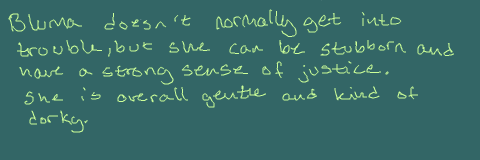 Bluma doesn't normally get into
trouble, but she can be stubborn and
have a strong sense of justice.
She is overall gentle and kind of
dorky.